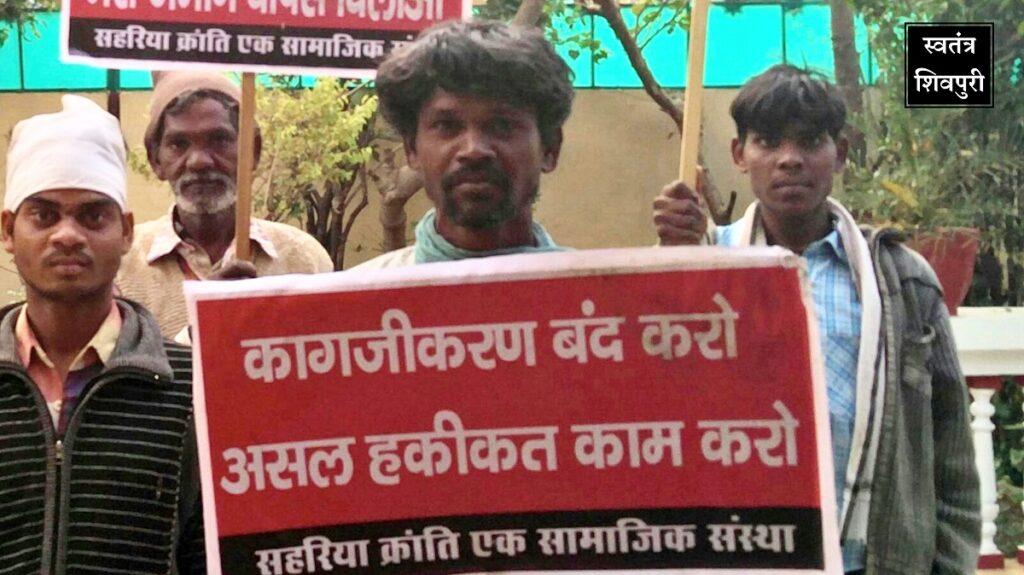 जमीन वापस दिलाओ
सहरिया क्रांति एक सामाजिक
स्वतंत्र
शिवपुरी
कागजीकरण बंद करो
असल हकीकत काम करो
सहरिया क्रांति एक सामाजिक संस्था